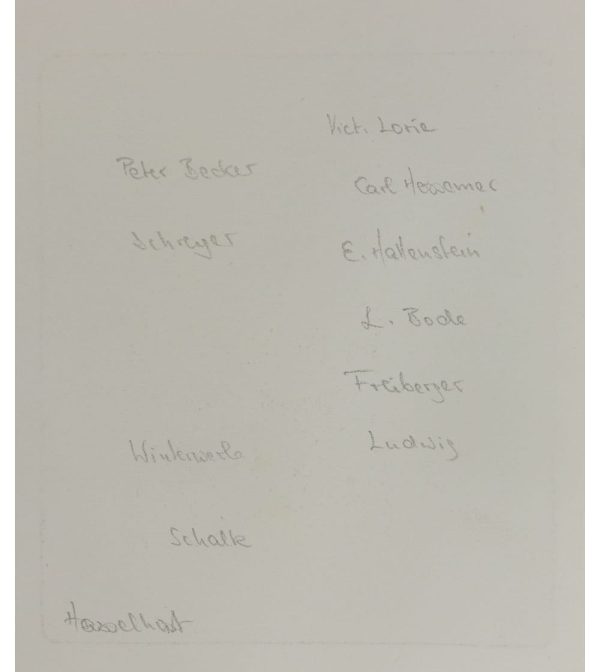 Vict. Lorie
Peter Becker
Carl Hoevemer
Schreyer
E. Hallenstein
L. Bode
Freiberger
Ludwig
Winterwerb
Schalk
Hasselhorst